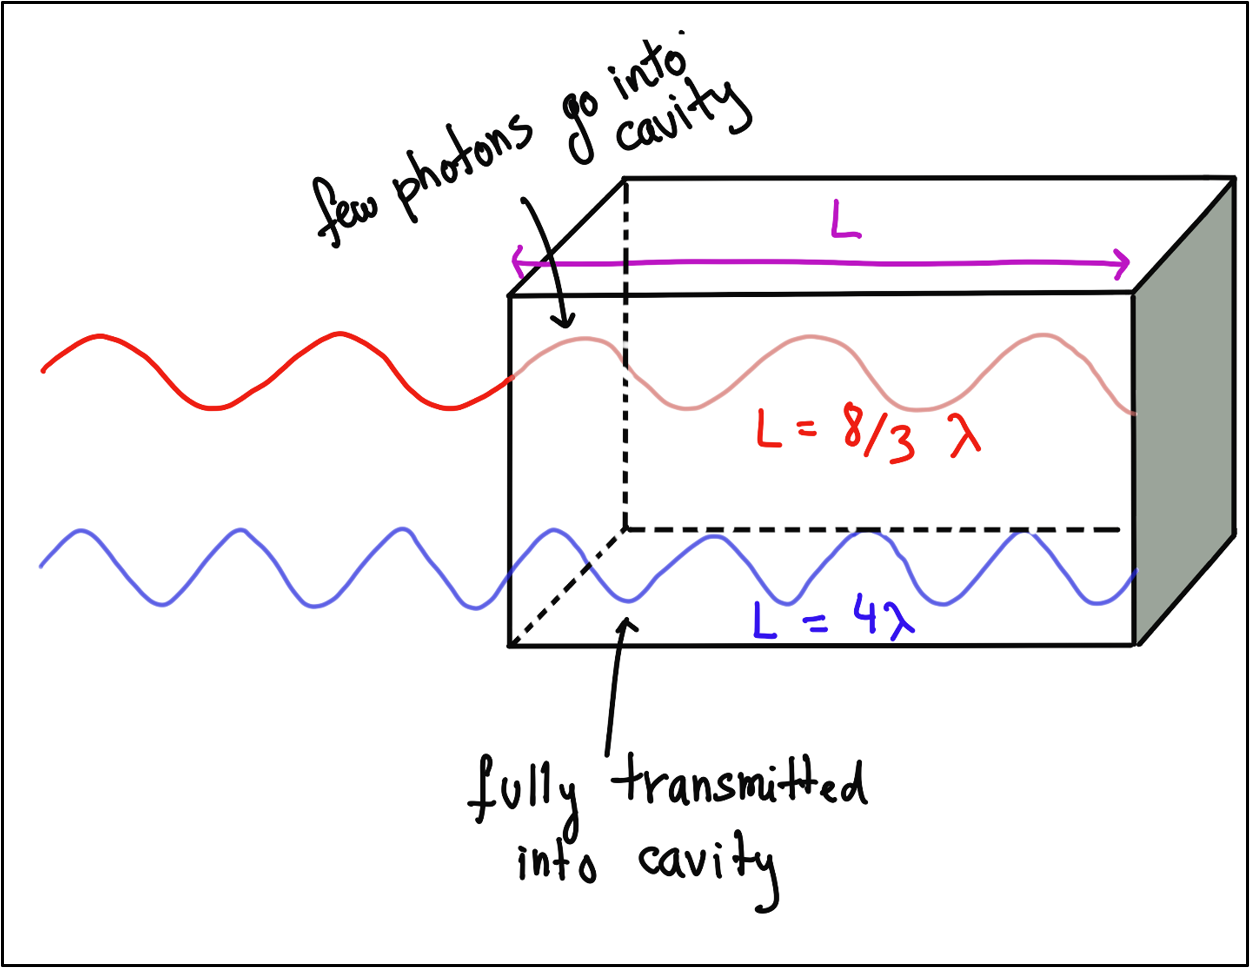 few photons go into
cavity
L
L = 8/3 λ
L = 4λ
fully transmitted
into cavity